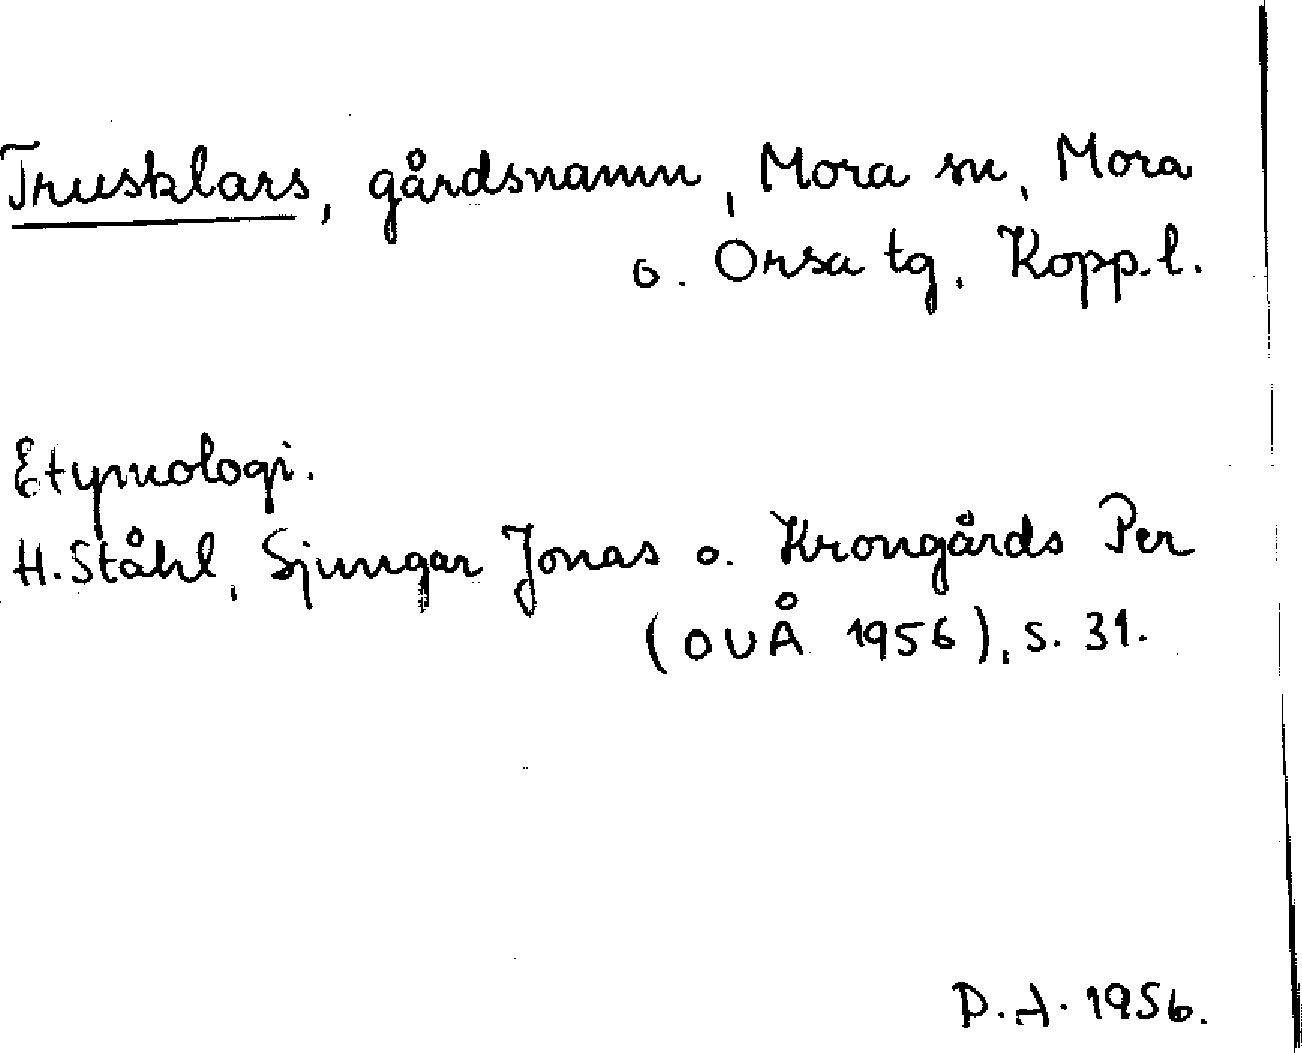 Trusklars, gårdsnamn, Mora sn, Mora
o. Orsa tg, Kopp.l.
Etymologi.
H. Ståhl, Sjungar Jonas o. Krongårds Per
(OUÅ 1956), s. 31.
D.A. 1956.